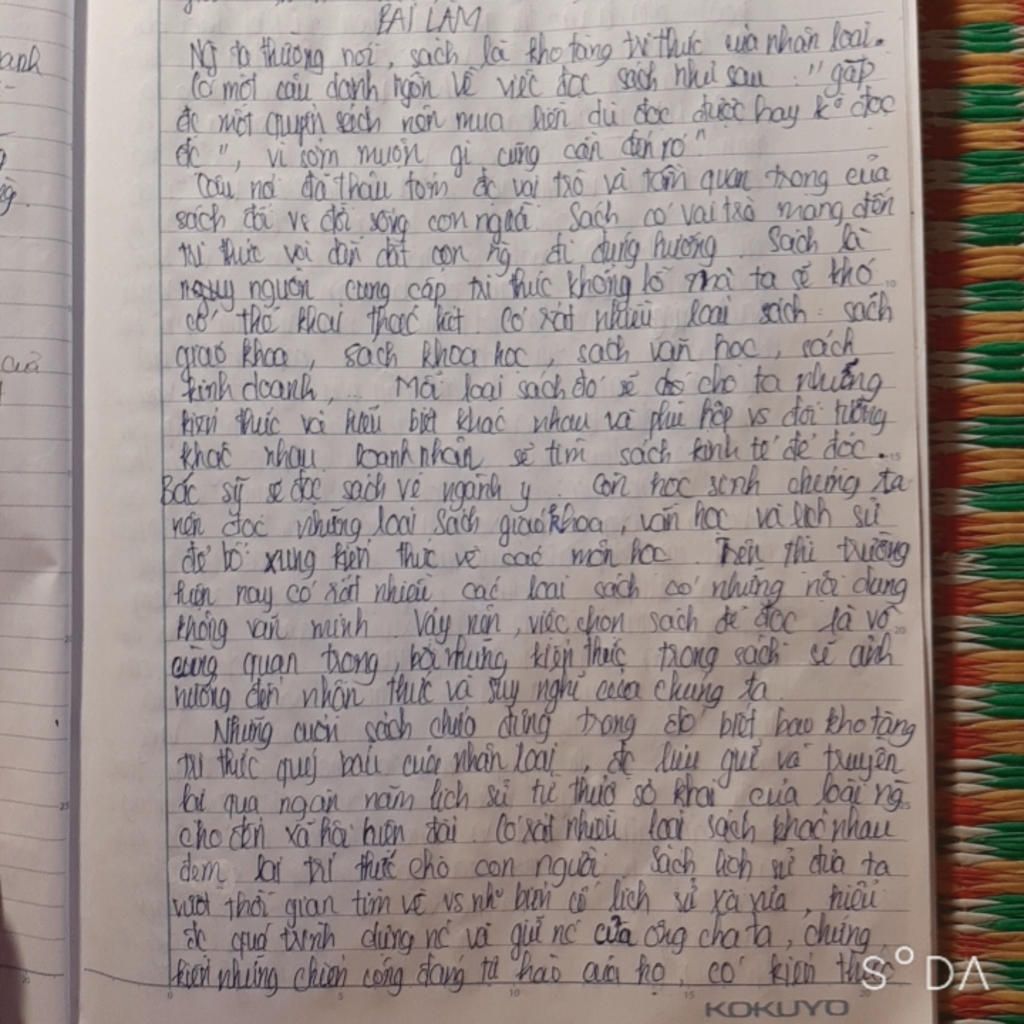 BÀI LÀM
Ng ta thường nói, sách là kho tàng tri thức của nhân loại.
Có một câu danh ngôn về việc đọc sách như sau "gặp
đc một quyển sách nên mua liền dù đọc được hay k° đọc
đc", vì sớm muộn gì cũng cần đến nó"
Câu nói đã thâu tóm đc vai trò và tầm quan trọng của
sách đối vs đời sống con người. Sách có vai trò mang đến
tri thức và dẫn dắt con ng đi đúng hướng. Sách là
nguồn cung cấp tri thức khổng lồ mà ta sẽ khó
có thể khai thác hết. Có rất nhiều loại sách: sách
giáo khoa, sách khoa học, sách văn học, sách
kinh doanh,... Mỗi loại sách đó sẽ cho ta những
kiến thức và hiểu biết khác nhau và phù hợp vs đối tượng
khác nhau. Doanh nhân sẽ tìm sách kinh tế để đọc.
Bác sỹ sẽ đọc sách về ngành y. Còn học sinh chúng ta
nên đọc những loại sách giáo khoa, văn học và lịch sử
để bổ xung kiến thức về các môn học. Trên thị trường
hiện nay có rất nhiều các loại sách có những nội dung
không văn minh. Vậy nên, việc chọn sách để đọc là vô
cùng quan trọng, bởi những kiến thức trong sách sẽ ảnh
hưởng đến nhận thức và suy nghĩ của chúng ta.
Những cuốn sách chứa đựng trong đó biết bao kho tàng
tri thức quý báu của nhân loại, đc lưu giữ và truyền
lại qua ngàn năm lịch sử từ thưở sơ khai của loài ng
cho đến xã hội hiện đại. Có rất nhiều loại sách khác nhau
đem lại tri thức cho con người. Sách lịch sử đưa ta
vượt thời gian tìm về vs nh° biến cố lịch sử xa xưa, hiểu
đc quá trình dựng nc và giữ nc của ông cha ta, chứng
kiến những chiến công đáng tự hào của họ, có kiến thức
S°DA
KOKUYO